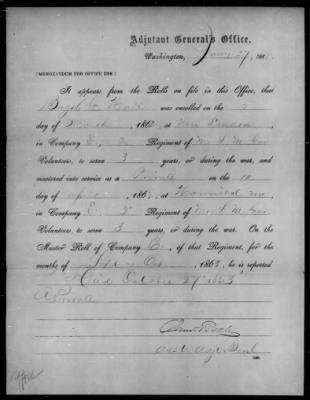 Adjutant General's Office,
Washington, 27, 188
[MEMORANDUM FOR OFFICE USE]
It appears from the Rolls on file in this Office, that
was enrolled on the
day of March, 186 at
in Company E, 2 Regiment of Mo S M Cav
Volunteers, to serve 3 years, or during the war, and
mustered into service as a Private on the 10
day of April, 186 at Hannibal Mo,
in Company E, 2" Regiment of Mo S M Cav
Volunteers, to serve 3 years, or during the war. On the
Muster Roll of Company E, of this Regiment, for the
months of 1863, he is reported
Died October 27" 1863
A Private
Asst Adjt Genl